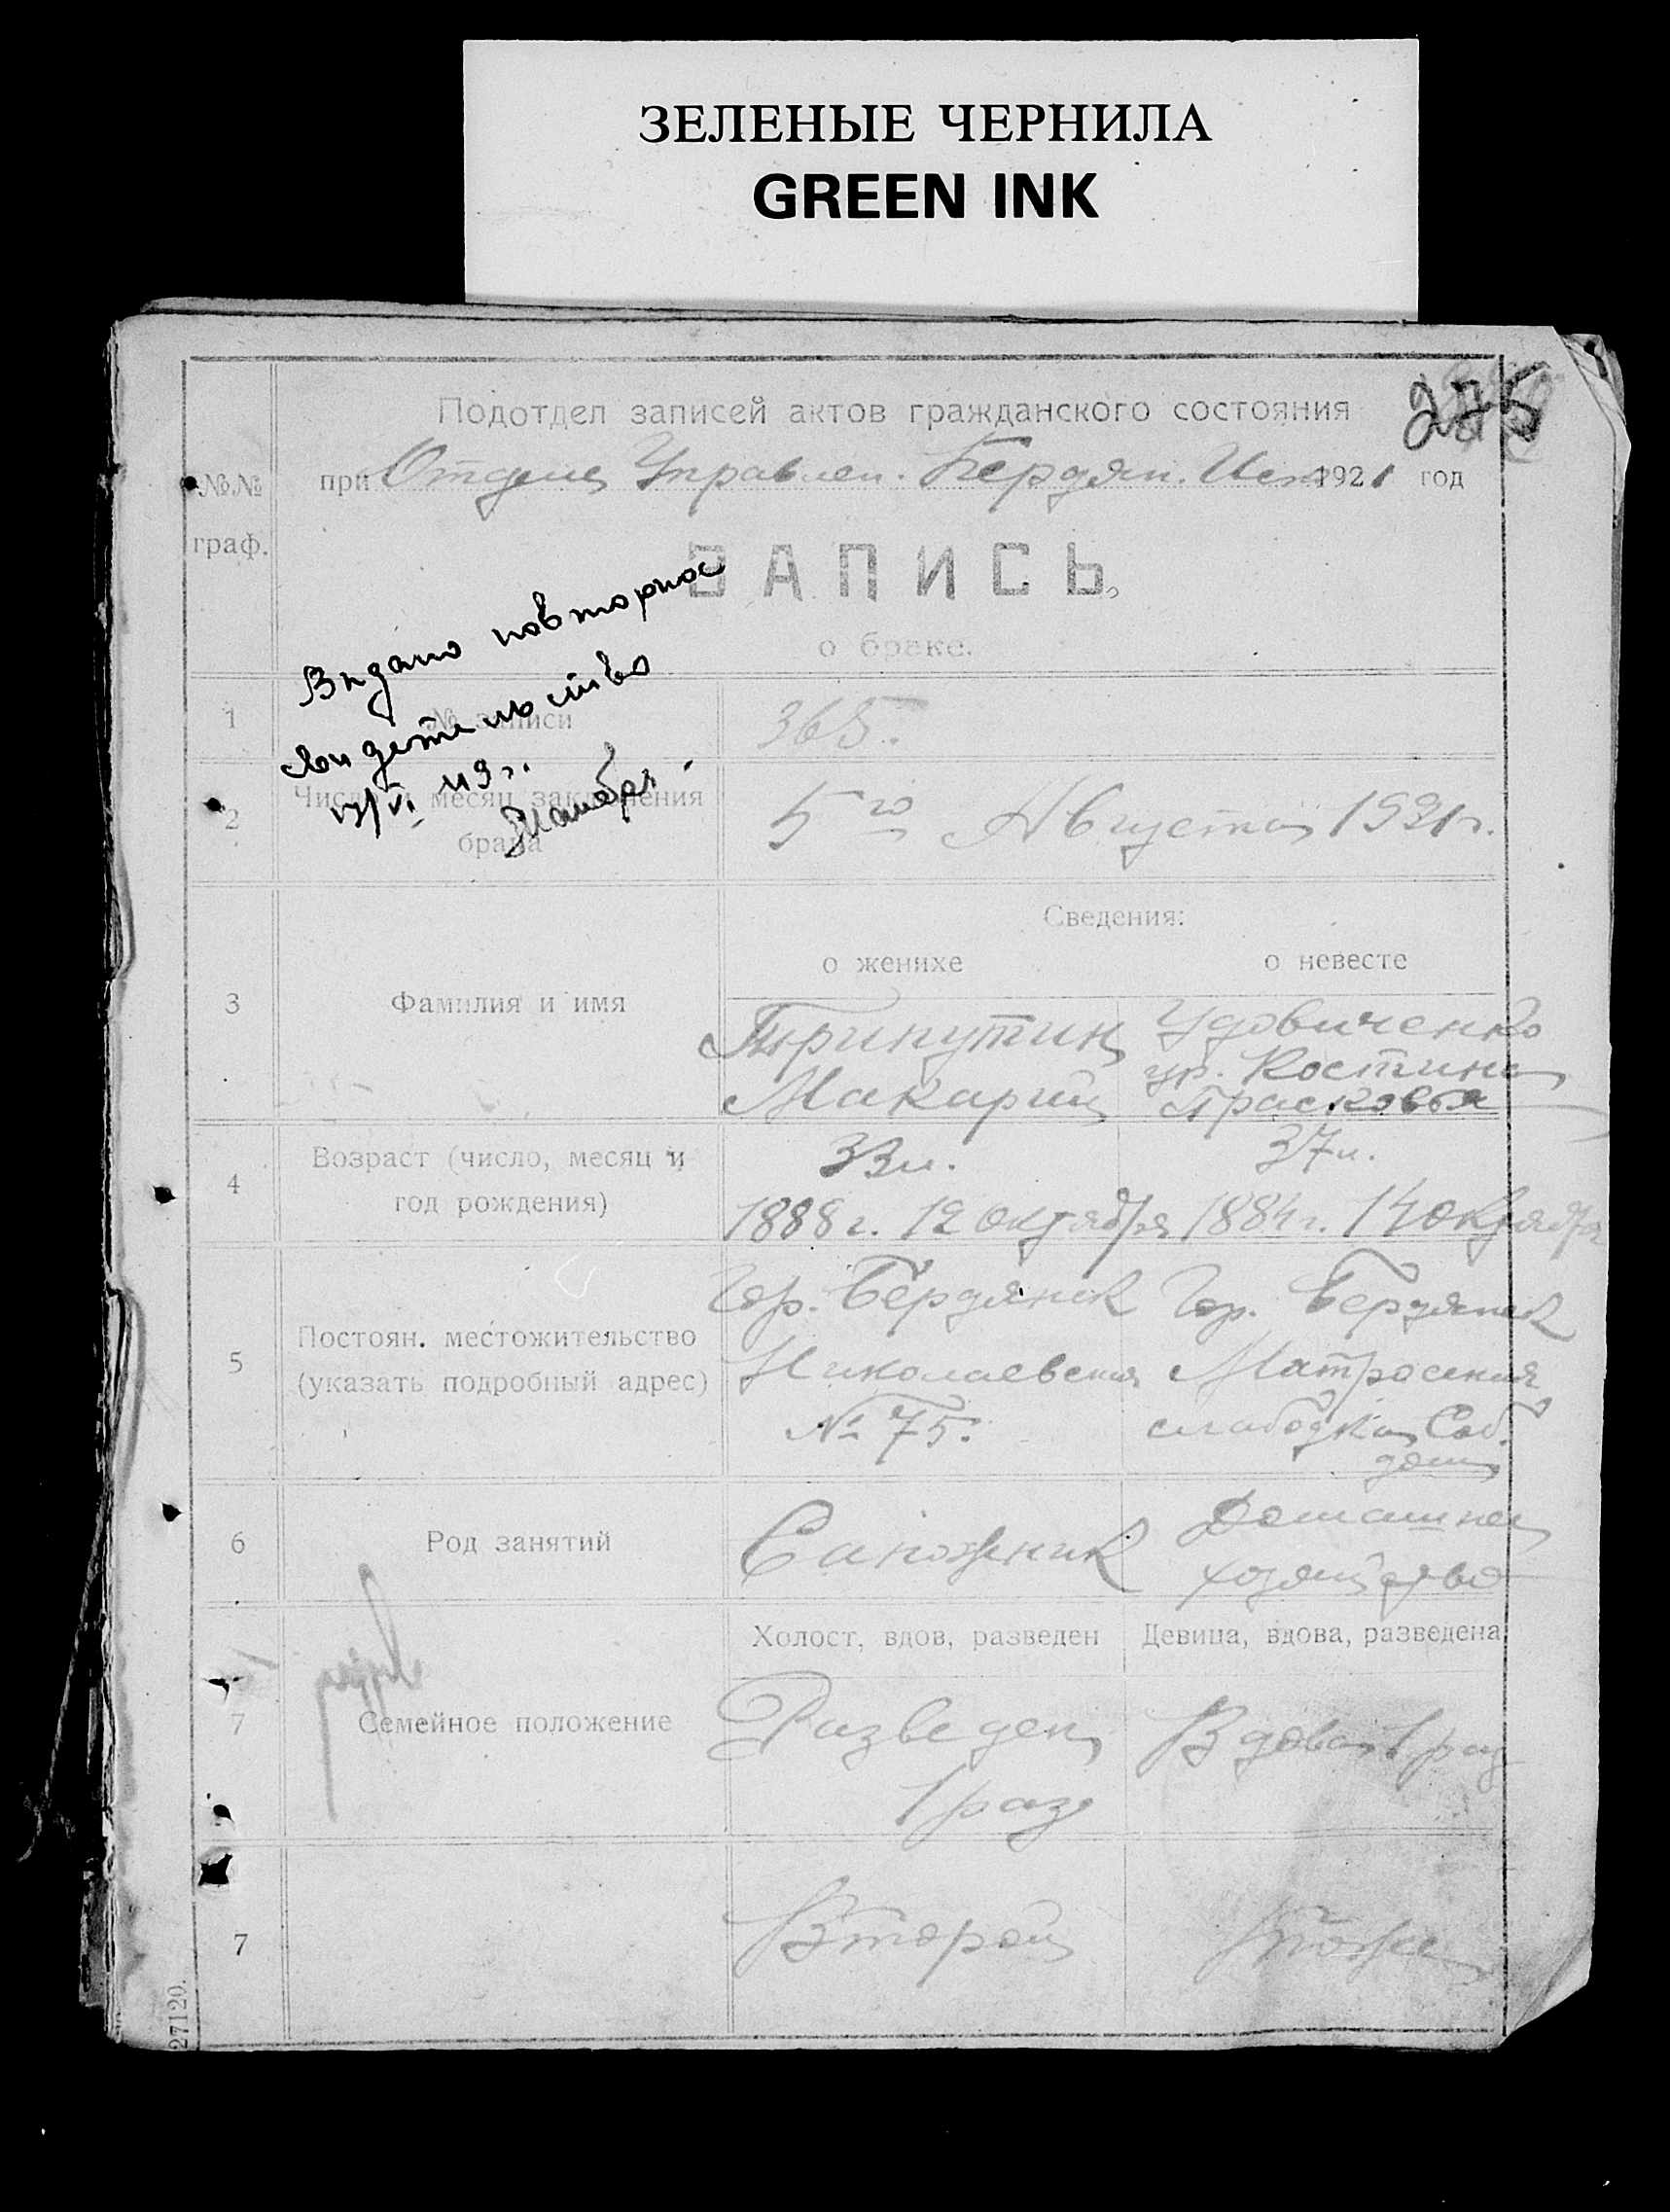 ЗЕЛЕНЫЕ ЧЕРНИЛА
GREEN INK
225
Подотдел записей актов гражданского состояния
№№ граф.
при Отделе Управлен. Бердян. 1921 год
ЗАПИСЬ
о браке.
Видано повторное
свидетельство
1 № записи 365.
2 Число и месяц заключения брака 5го Августа 1921 г.
Сведения:
о женихе о невесте
3 Фамилия и имя
Припутин Удовиченко
ур. Костина
Макарий Прасковья
4 Возраст (число, месяц и год рождения)
33 л. 37 л.
1888 г. 12 октября 1884 г. 14 октября
5 Постоян. местожительство (указать подробный адрес)
Гор. Бердянск Гор. Бердянск
Николаевская Матросская
№ 75. слабодка Соб.
дом
6 Род занятий
Сапожник Домашнее
хозяйство
Холост, вдов, разведен Девица, вдова, разведена
7 Семейное положение
Разведен Вдова 1 раз
1 раз
7 Второй Тоже
27120.